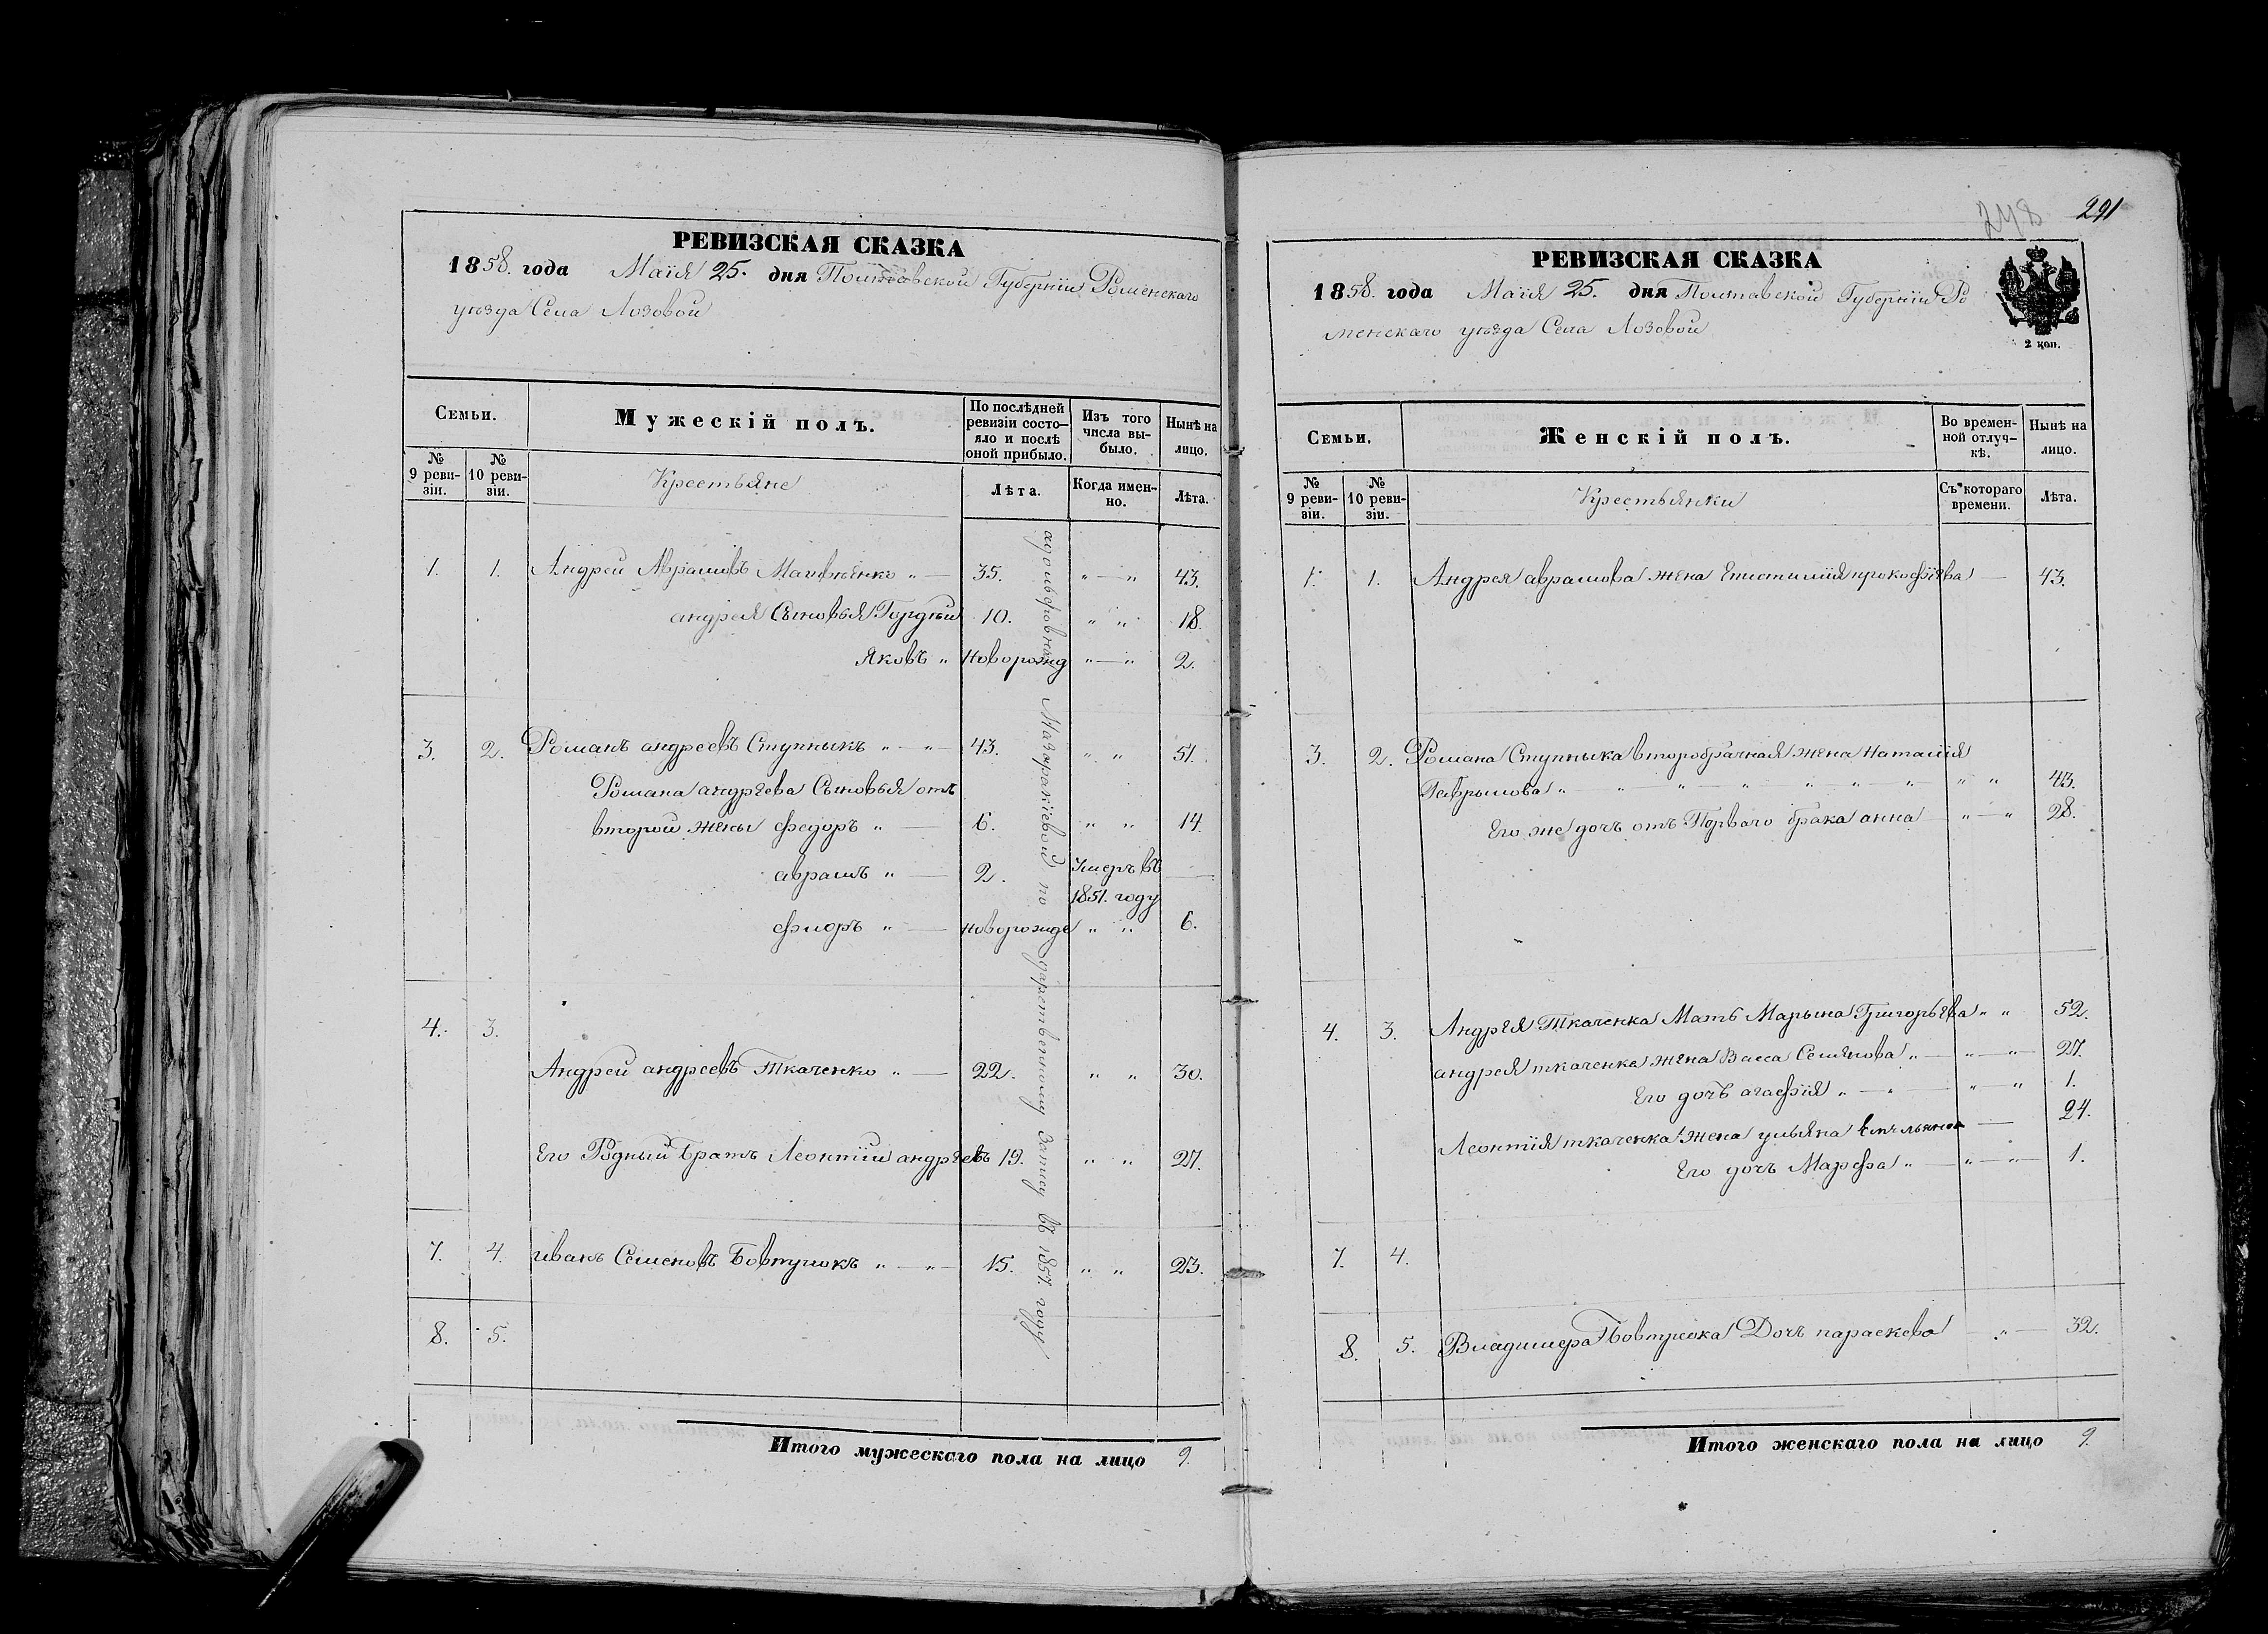 РЕВИЗСКАЯ СКАЗКА
1858. года Маія 25. дня Полтавской Губерніи Роменскаго
уѣзда Села Лозовой
Семьи.
Мужескій полъ.
По послѣдней ревизіи состо-яло и послѣ оной прибыло.
Изъ того числа вы-было.
Нынѣ на лицо.
№ 9 реви-зіи.
№ 10 реви-зіи.
Крестьяне
Лѣта.
Когда имен-но.
Лѣта.
1. 1. Андрей Аврамовъ Матвѣенко „ — 35. „ — „ 43.
андрея Сыновья Гордѣй 10. „ „ 18.
Яковъ „ Новорожд „ — „ 2.
3. 2. Романъ андреевъ Ступныкъ „ — „ — 43. „ „ 51.
Романа андрѣева Сыновья отъ
второй жены федоръ „ — 6. „ „ 14.
аврамъ „ — 2. Умеръ въ —
1851. году
флоръ „ — новорожде „ „ 6.
4. 3.
Андрей андреевъ Ткаченко „ — 22. „ „ 30.
Его Родный братъ Леонтій андрѣевъ 19. „ „ 27.
7. 4. иванъ Семеновъ Бовтунокъ „ — „ — 15. „ „ 23.
8. 5.
адольфовны Мазаракіевой по дарственному Запису въ 1857. году
Итого мужескаго пола на лицо 9.
248 291
РЕВИЗСКАЯ СКАЗКА
1858. года Маія 25. дня Полтавской Губерніи Ро
менскаго уѣзда Села Лозовой
2 коп.
Семьи.
Женскій полъ.
Во времен-ной отлуч-кѣ.
Нынѣ на лицо.
№ 9 реви-зіи.
№ 10 реви-зіи.
Крестьянки
Съ котораго времени.
Лѣта.
1. 1. Андрея аврамова жена Епистимія прокофіева — 43.
3. 2. Романа Ступныка второбрачная жена наталія
Гаврылова „ „ „ — „ „ „ „ „ „ 43.
Его же дочь от Перваго брака анна „ — „ 28.
4. 3. Андрея Ткаченка Мать Марына Григорьева „ „ 52.
андрея ткаченка жена Васса Семенова „ — „ — „ 27.
Его дочь агафія „ — „ — „ — „ 1.
Леонтія ткаченка жена ульяна емельянова — 24.
Его дочь Марфа „ — „ — „ 1.
7. 4.
8. 5. Владимера Бовтунока Дочь параскева — „ — 32.
Итого женскаго пола на лицо 9.